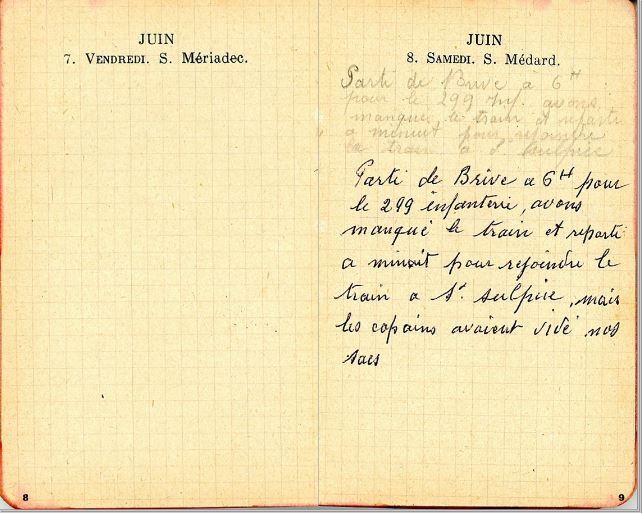 JUIN
7. VENDREDI. S. Mériadec.
8
JUIN
8. SAMEDI. S. Médard.
Parti de Brive à 6H
pour le 299 Inf. avons
manquer le train et reparti
a minuit pour rejoindre
le train a S Sulpice
Parti de Brive a 6H pour
le 299 infanterie, avons
manqué le train et reparti
a minuit pour rejoindre le
train a St. Sulpice, mais
les copains avaient vidé nos
sacs
9